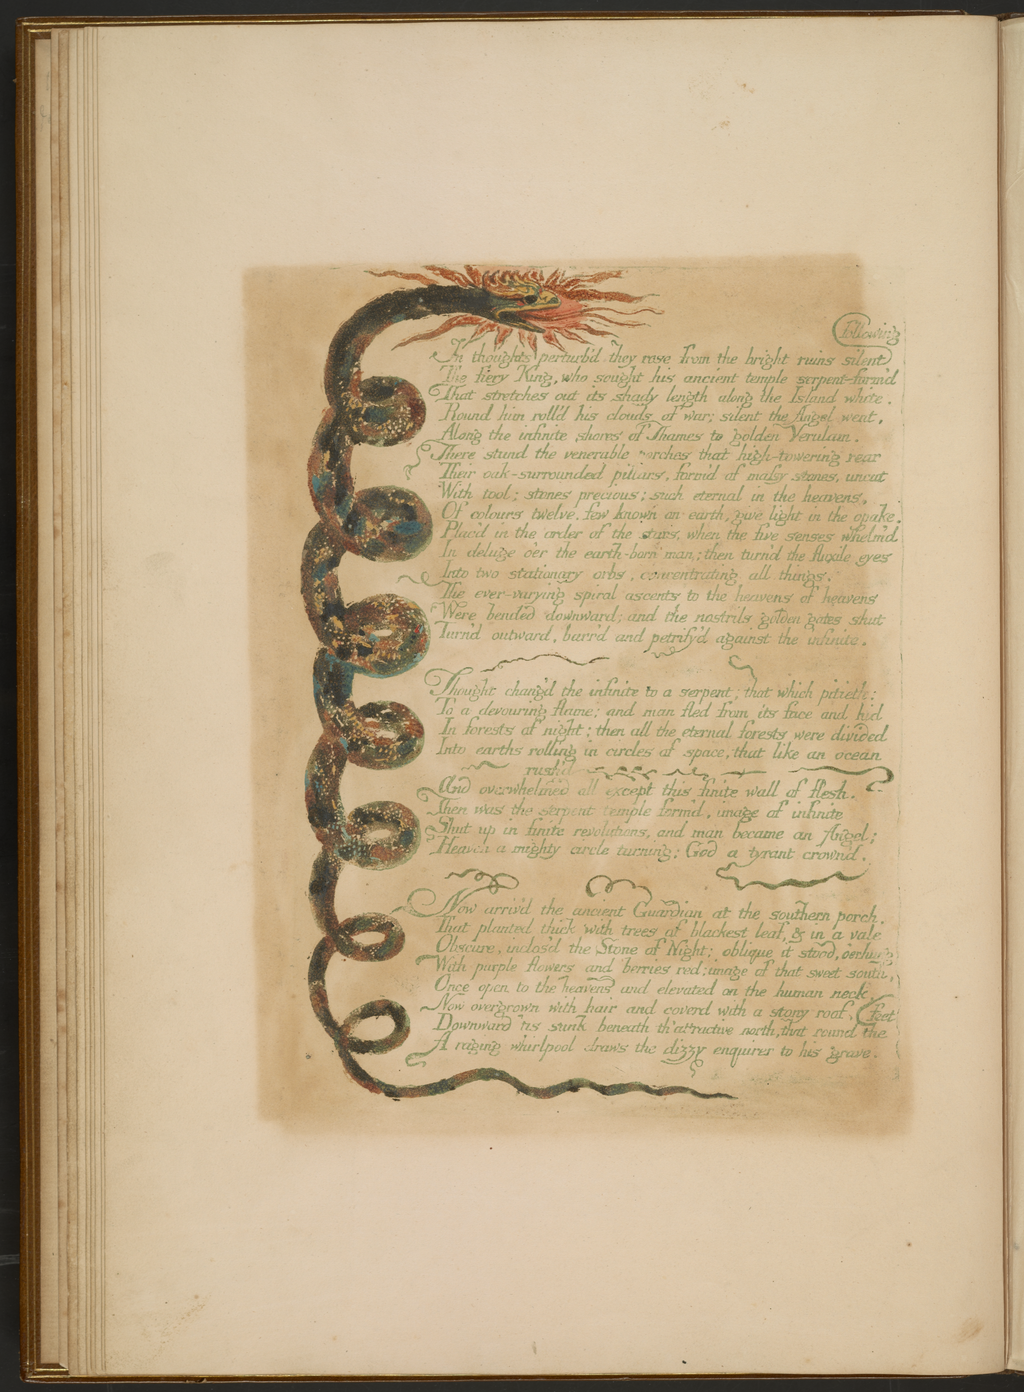 Following
In thoughts perturb'd, they rose from the bright ruins silent
The fiery King, who sought his ancient temple serpent-form'd
That stretches out its shady length along the Island white.
Round him roll'd his clouds of war; silent the Angel went,
Along the infinite shores of Thames to golden Verulam.
There stand the venerable porches that high-towering rear
Their oak-surrounded pillars, form'd of massy stones, uncut
With tool; stones precious; such eternal in the heavens,
Of colours twelve, few known on earth, give light in the opake,
Plac'd in the order of the stars, when the five senses whelm'd
In deluge o'er the earth-born man; then turn'd the fluxile eyes
Into two stationary orbs, concentrating all things.
The ever-varying spiral ascents to the heavens of heavens
Were bended downward; and the nostrils golden gates shut
Turn'd outward, barr'd and petrify'd against the infinite.
Thought chang'd the infinite to a serpent; that which pitieth:
To a devouring flame; and man fled from its face and hid
In forests of night; then all the eternal forests were divided
Into earths rolling in circles of space, that like an ocean
rush'd
And overwhelmed all except this finite wall of flesh.
Then was the serpent temple form'd, image of infinite
Shut up in finite revolutions, and man became an Angel;
Heaven a mighty circle turning; God a tyrant crown'd.
Now arriv'd the ancient Guardian at the southern porch,
That planted thick with trees of blackest leaf, & in a vale
Obscure, inclos'd the Stone of Night; oblique it stood, o'erhung
With purple flowers and berries red; image of that sweet south,
Once open to the heavens and elevated on the human neck,
Now overgrown with hair and coverd with a stony roof,
feet
Downward 'tis sunk beneath th' attractive north, that round the
A raging whirlpool draws the dizzy enquirer to his grave.